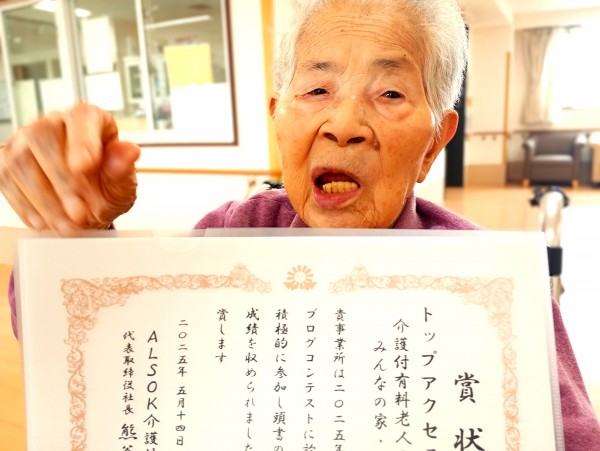 賞状
トップアクセ
介護付有料老人
みんなの家・
貴事業所は二〇二五年
ブログコンテストに於
積極的に参加し頭書の
成績を収められました
賞します
二〇二五年五月十四日
ALSOK介護
代表取締役社長 熊